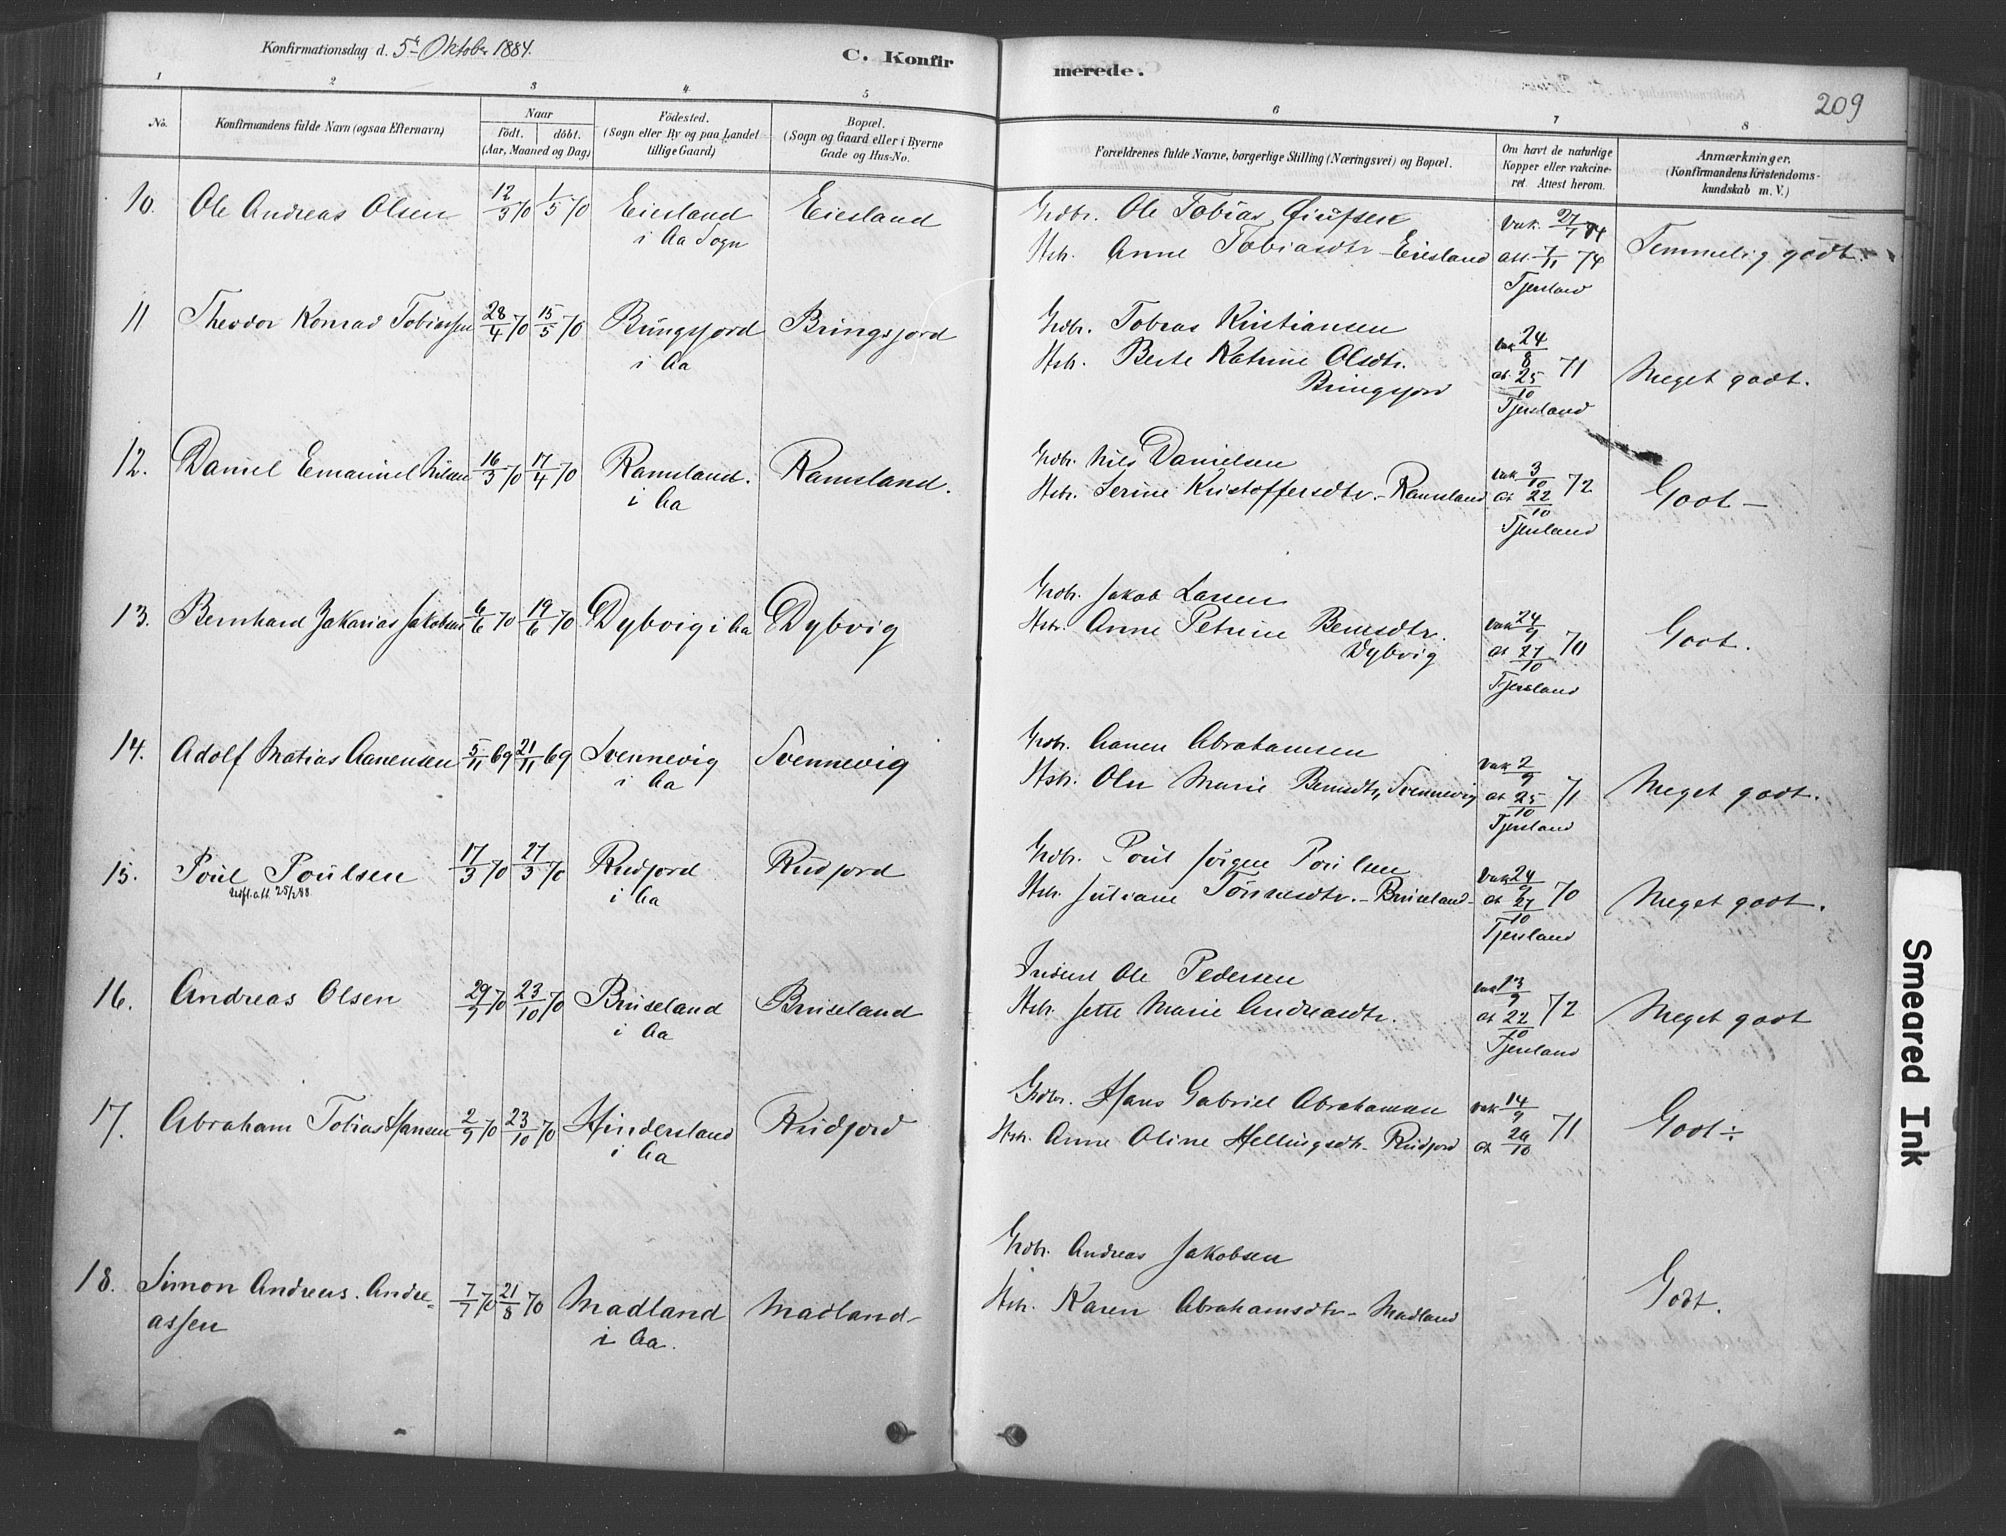 Konfirmationsdag d. 5te Oktober 1884.
C. Konfirmerede.
209
1 2 3 4 5 6 7 8
No.
Konfirmandens fulde Navn (ogsaa Efternavn)
Naar
födt. döbt.
(Aar, Maaned og Dag)
Födested.
(Sogn eller By og paa Landet
tillige Gaard)
Bopæl.
(Sogn og Gaard eller i Byerne
Gade og Hus-No.
Forældrenes fulde Navne, borgerlige Stilling (Næringsvei) og Bopæl.
Om havt de naturlige
Kopper eller vakcine-
ret. Attest herom.
Anmærkninger.
(Konfirmandens Kristendoms-
kundskab m. V.)
10. Ole Andreas Olsen 12/3 70 1/5 70 Eiesland Eiesland
i Aa Sogn
Grdbr. Ole Tobias
Hstr. Anne Tobiasdtr - Eiesland
Vak. 27/ 74
att. 1/11 74
Tjersland
Temmelig godt.
11 Theodor Konrad Tobiassen 28/4 70 15/5 70 Bringsjord Bringsjord
i Aa
Grdbr. Tobias Kristiansen
Hstr. Berte Katrine Olsdtr.
Bringsjord
Vak 24/8
at. 25/10 71
Tjersland
Meget godt.
12. Daniel Emanuel Nilsen 16/3 70 17/4 70 Ramsland. Ramsland.
i Aa
Grdbr. Nils Danielsen
Hstr. Serine Kristoffersdtr. - Ramsland
Vak 3/10
at 22/10 72
Tjersland
Godt -
13. Bernhard Zakarias Jakobsen 6/6 70 19/6 70 Dybvig i Aa Dybvig
Grdbr. Jakob Larsen
Hstr. Anne Petrine Berntsdtr.
Dybvig
Vak 24/9
at 27/10 70
Tjersland
Godt.
14. Adolf Matias Aanensen 5/11 69 21/11 69 Svennevig Svennevig
i Aa
Grdbr. Aanen Abrahamsen
Hstr. Olene Marie Berntsdtr, Svennevig
Vak 2/9
at 25/10 71
Tjersland
Meget godt.
15. Poul Poulsen 17/3 70 27/3 70 Rudjord Rudjord
Udfl.att. 25/2 88 i Aa
Grdbr. Poul Jörgen Poulsen
Hstr. Juliane Tönnesdtr. - Bruseland -
Vak 24/9
at 27/10 70
Tjersland
Meget godt.
16. Andreas Olsen 29/9 70 23/10 70 Bruseland Bruseland
i Aa
Inderst Ole Pedersen
Hstr. Jette Marie Andreasdtr.
Vak 13/9
at 22/10 72
Tjersland
Meget godt
17. Abraham Tobias Hansen 2/9 70 23/10 70 Hindersland Rudjord
i Aa
Grdbr. Hans Gabriel Abrahamsen
Hstr. Anne Oline Hellingsdtr - Rudjord
Vak 14/9
at 26/10 71
Godt ÷
18. Simon Andreas. Andre- 7/7 70 21/8 70 Madland Madland -
assen i Aa.
Grdbr. Andreas Jakobsen
Hstr. Karen Abrahamsdtr - Madland
Godt.
Smeared Ink